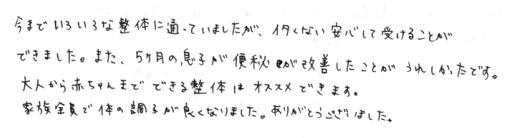 今までいろいろな整体に通っていましたが、イタくない安心して受けることが
できました。また、5ヶ月の息子が便秘が改善したことがうれしかったです。
大人から赤ちゃんまでできる整体はオススメできます。
家族全員で体の調子が良くなりました。ありがとうございました。